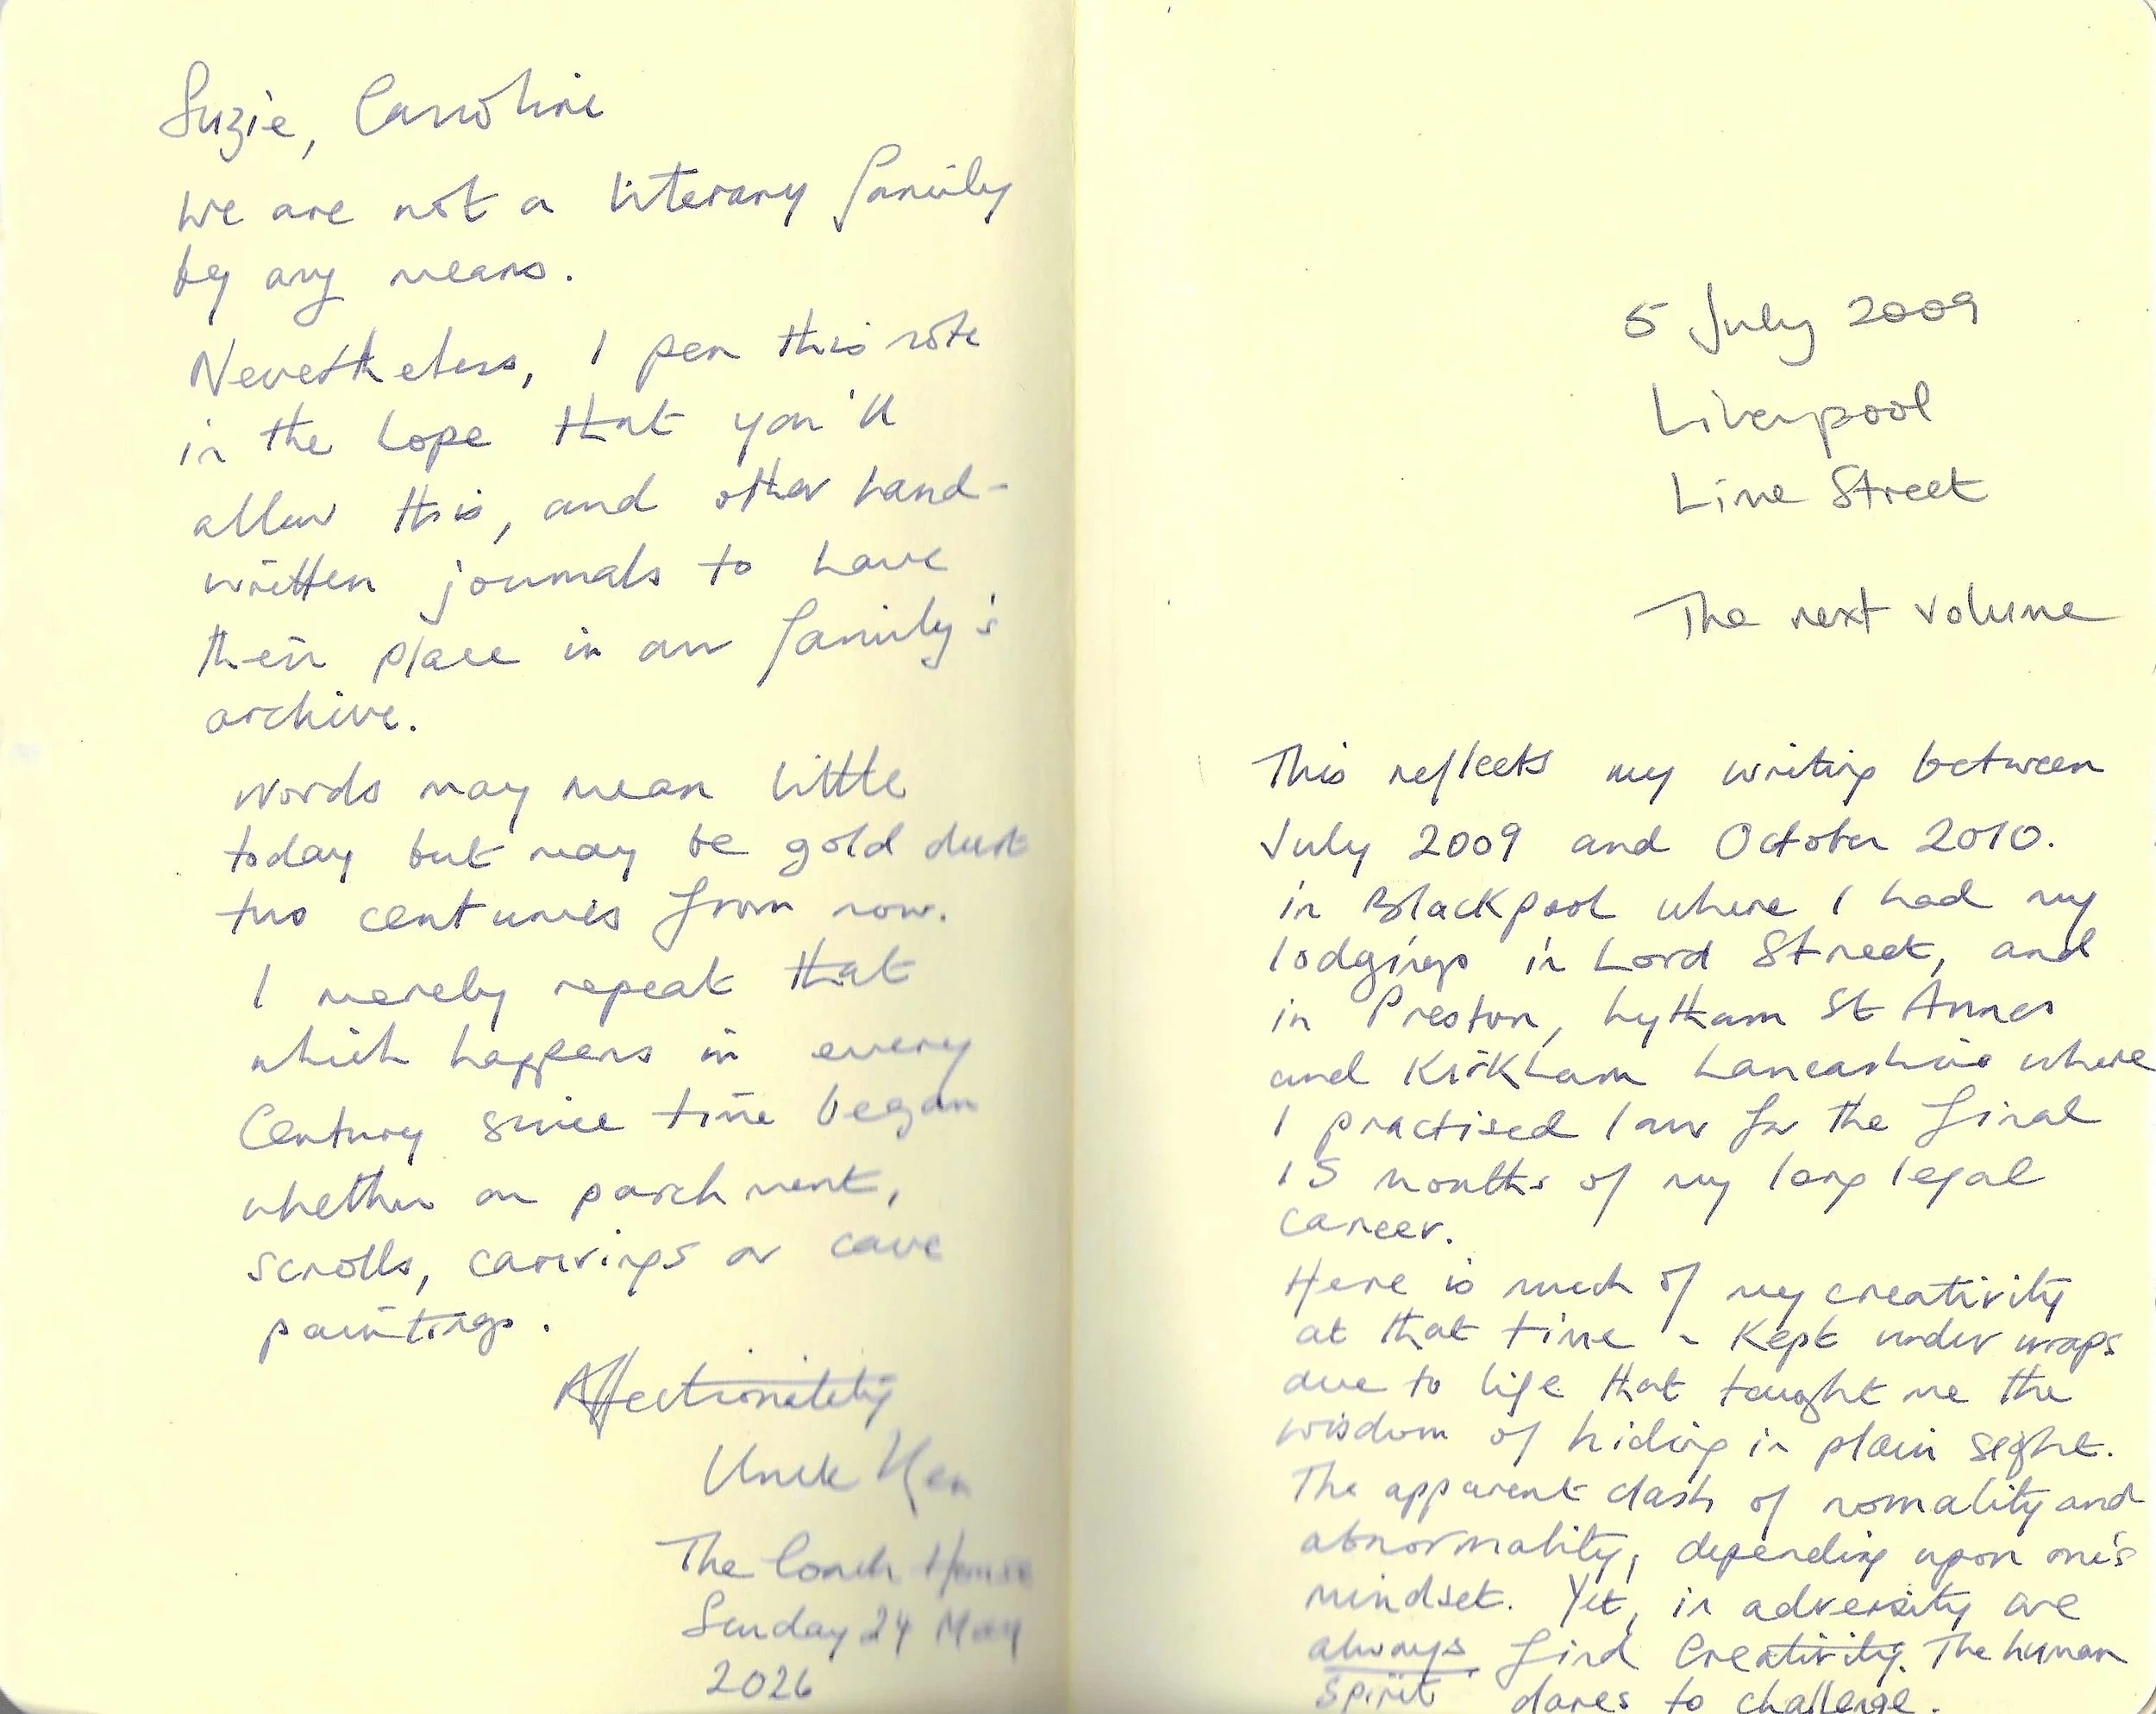 Suzie, Caroline
We are not a literary family
by any means.
Nevertheless, I pen this note
in the hope that you'll
allow this, and other hand-
written journals to have
their place in our family's
archive.
Words may mean little
today but may be gold dust
two centuries from now.
I merely repeat that
which happens in every
Century since time began
whether on parchment,
scrolls, carvings or cave
paintings.
Affectionately
Uncle Ken
The Coach House
Sunday 24 May
2026
5 July 2009
Liverpool
Lime Street
The next volume
This reflects my writing between
July 2009 and October 2010.
in Blackpool where I had my
lodgings in Lord Street, and
in Preston, Lytham St Annes
and Kirkham Lancashire where
I practised law for the final
15 months of my long legal
career.
Here is much of my creativity
at that time - kept under wraps
due to life that taught me the
wisdom of hiding in plain sight.
The apparent clash of normality and
abnormality, depending upon one's
mindset. Yet, in adversity we
always find Creativity. The human
spirit dares to challenge.